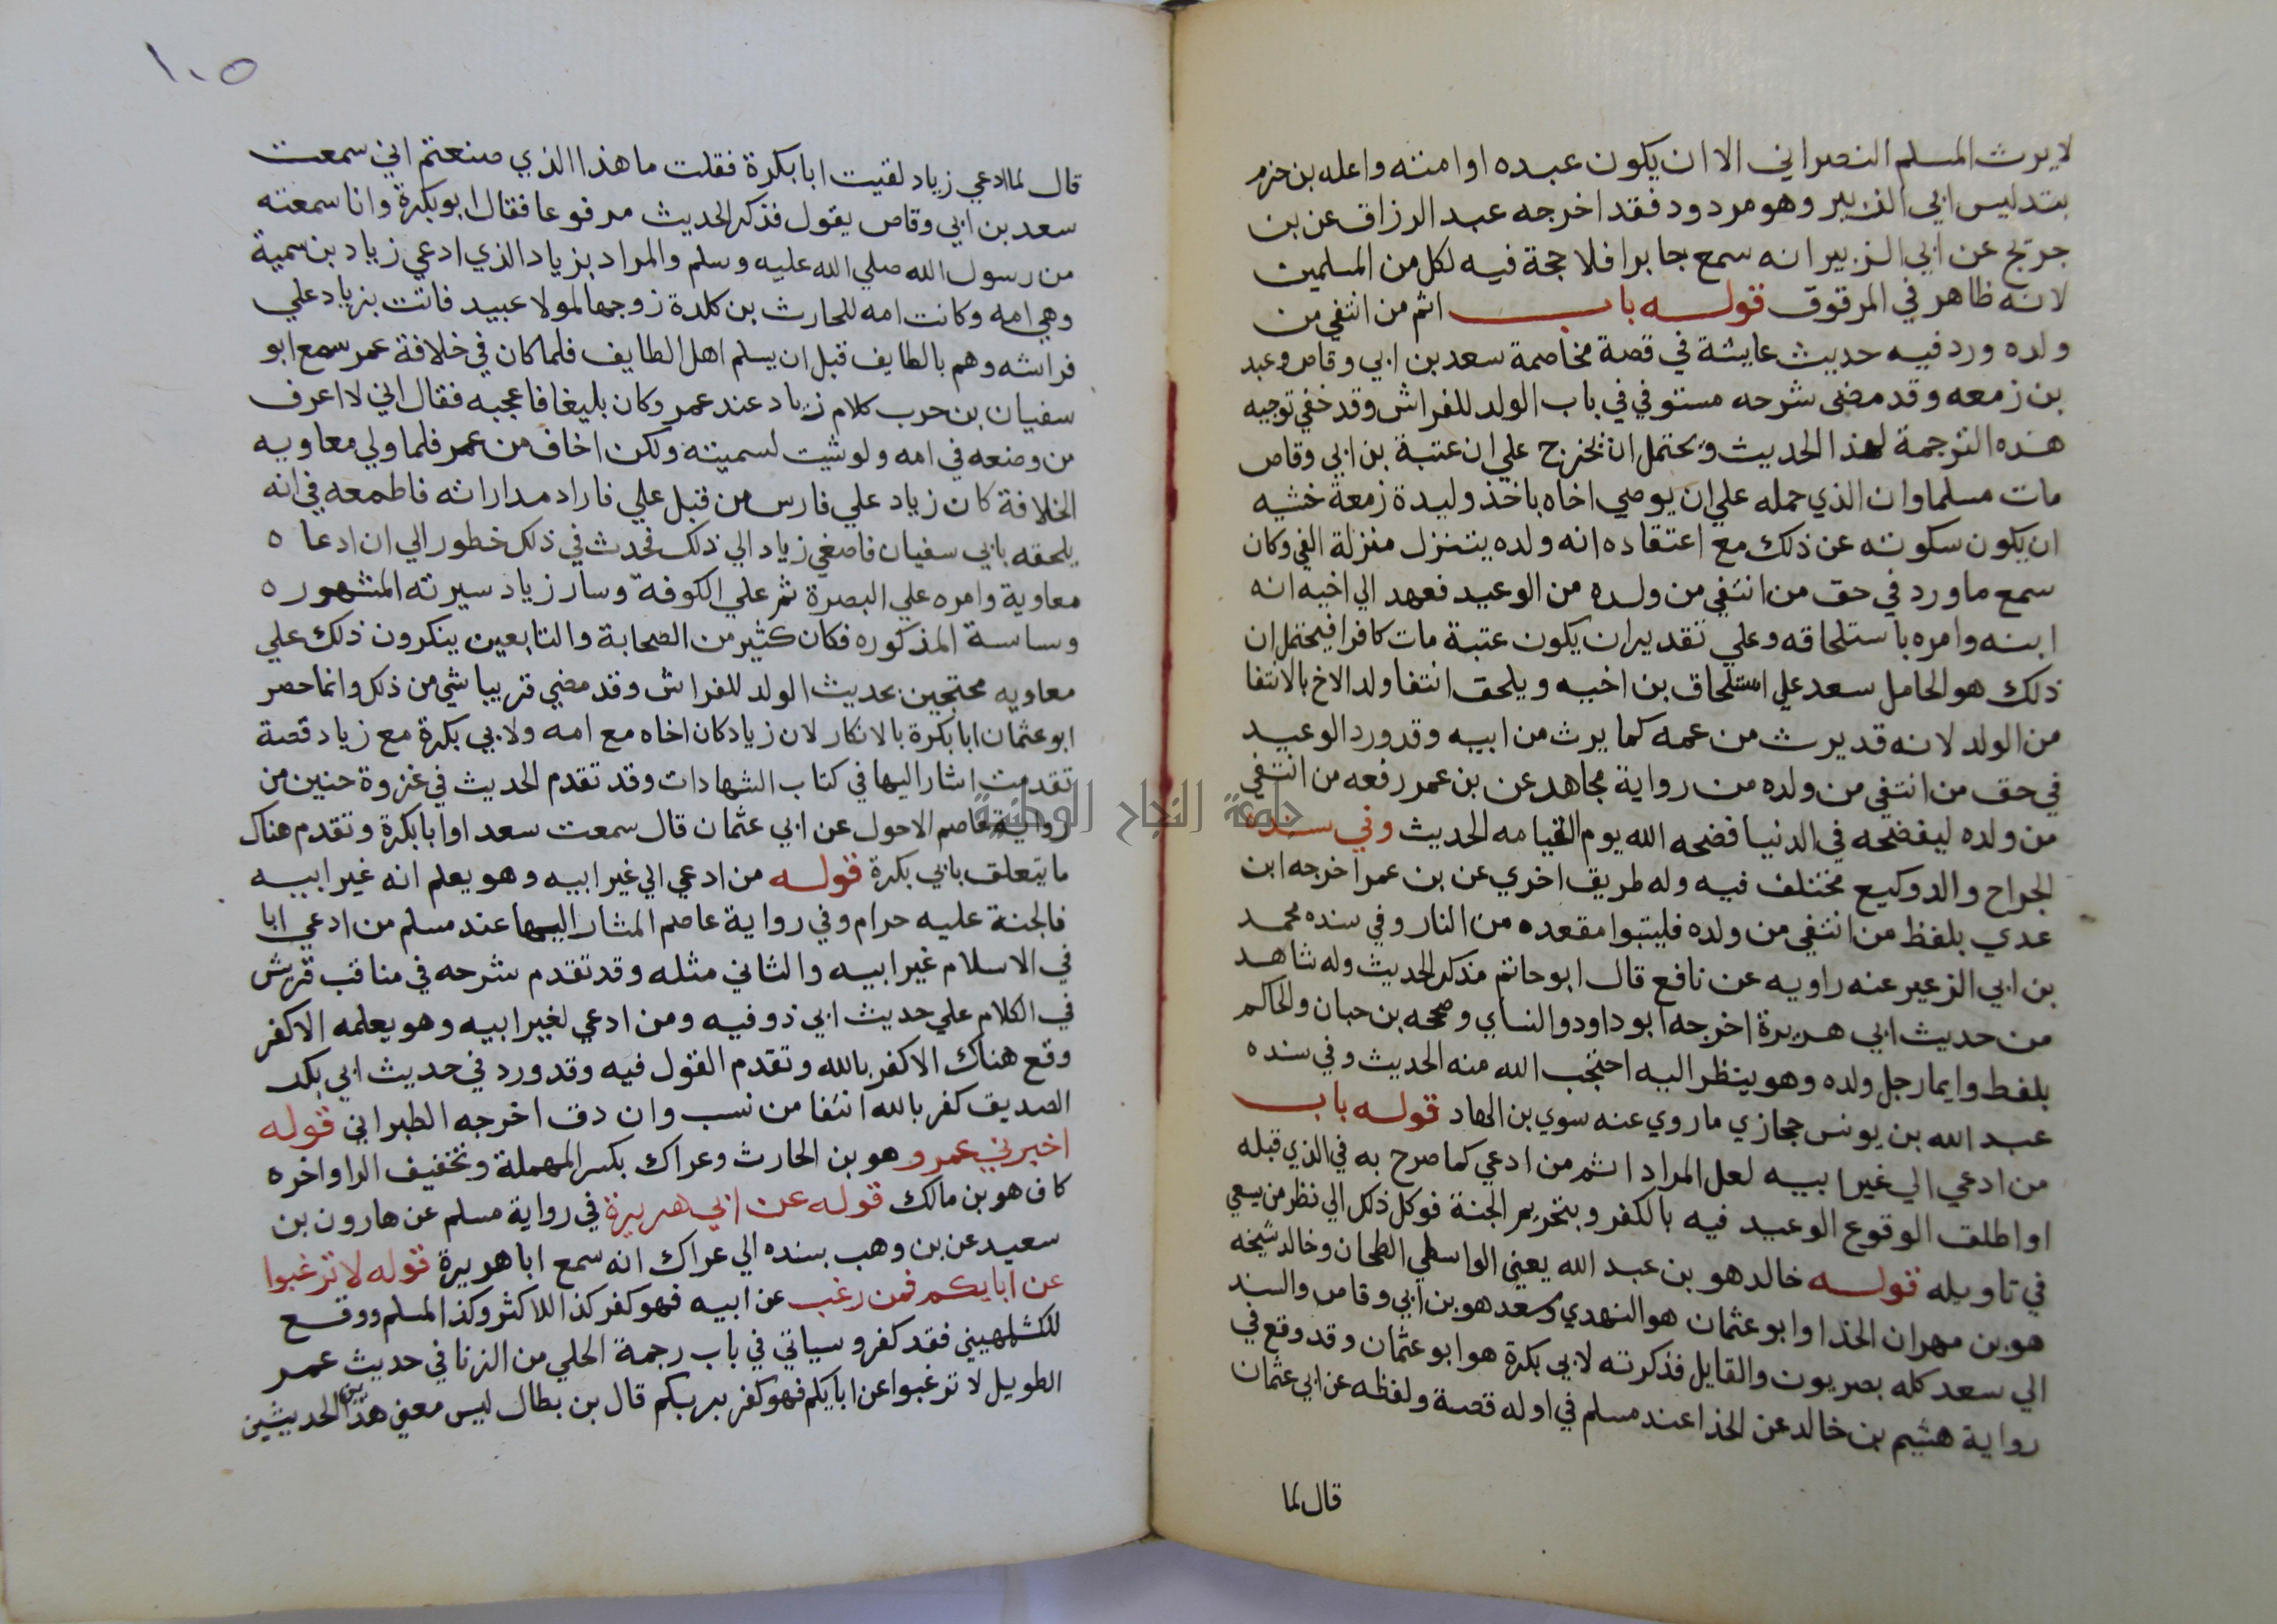 لا يرث المسلم النصراني الا ان يكون عبده او امته واعله بن حزم
بتدليس ابي الزبير وهو مردود فقد اخرجه عبد الرزاق عن بن
جريج عن ابي الزبير انه سمع جابرا فلا حجة فيه لكل من المسلمين
لانه ظاهر في المرقوق قوله باب اثم من انتفي من
ولده ورد فيه حديث عايشة في قصة مخاصمة سعد بن ابي وقاص وعبد
بن زمعه وقد مضى شرحه مستوفي في باب الولد للفراش وقد خفي توجيه
هذه الترجمة لهذا الحديث ويحتمل ان يخرج علي ان عتبة بن ابي وقاص
مات مسلما وان الذي حمله علي ان يوصي اخاه باخذ وليدة زمعة خشيه
ان يكون سكوته عن ذلك مع اعتقاده انه ولده يتنزل منزلة النفي وكان
سمع ما ورد في حق من انتفي من ولده من الوعيد فعهد الي اخيه انه
ابنه وامره باستلحاقه وعلي تقدير ان يكون عتبة مات كافرا فيحتمل ان
ذلك هو الحامل سعد علي استلحاق بن اخيه ويلحق انتفا ولد الاخ بالانتفا
من الولد لانه قد يرث من عمه كما يرث من ابيه وقد ورد الوعيد
في حق من انتفي من ولده من رواية مجاهد عن بن عمر رفعه من انتفي
من ولده ليفضحه في الدنيا فضحه الله يوم القيامه الحديث وفي سنده
الجراح والد وكيع مختلف فيه وله طريق اخري عن بن عمر اخرجه ابن
عدي بلفظ من انتفي من ولده فليتبوا مقعده من النار وفي سنده محمد
بن ابي الزعيرعنه راويه عن نافع قال ابو حاتم منكر الحديث وله شاهد
من حديث ابي هريرة اخرجه ابو داود والنساي وصححه بن حبان والحاكم
بلفظ وايما رجل ولده وهو ينظر اليه احتجب الله منه الحديث وفي سنده
عبد الله بن يونس حجازي ما روي عنه سوي بن الهاد قوله باب
من ادعي الي غير ابيه لعل المراد اثم من ادعي كما صرح به في الذي قبله
او اطلق الوقوع الوعيد فيه بالكفر وبتحريم الجنة فوكل ذلك الي نظر من يسعي
في تاويله قوله خالد هو بن عبد الله يعني الواسطي الطحان وخالد شيخه
هو بن مهران الحذا وابو عثمان هو النهدي وسعد هو بن ابي وقاص والسند
الي سعد كله بصريون والقايل فذكرته لابي بكرة هو ابو عثمان وقد وقع في
رواية هشيم بن خالد عن الحذا عند مسلم في اوله قصة ولفظه عن ابي عثمان
قال لما
١٠٥
قال لما ادعي زياد لقيت ابا بكرة فقلت ما هذا الذي صنعتم اني سمعت
سعد بن ابي وقاص يقول فذكر الحديث مرفوعا فقال ابو بكرة وانا سمعته
من رسول الله صلي الله عليه وسلم والمراد بزياد الذي ادعي زياد بن سمية
وهي امه وكانت امه للحارث بن كلدة زوجها لمولا عبيد فاتت بزياد علي
فراشه وهم بالطايف قبل ان يسلم اهل الطايف فلما كان في خلافة عمر سمع ابو
سفيان بن حرب كلام زياد عند عمر وكان بليغا فاعجبه فقال اني لا اعرف
من وضعه في امه ولو شيت لسميته ولكن اخاف من عمر فلما ولي معاويه
الخلافة كان زياد علي فارس من قبل علي فاراد مداراته فاطمعه في انه
يلحقه بابي سفيان فاصغي زياد الي ذلك فحدث في ذلك خطور الي ان ادعاه
معاوية وامره علي البصرة ثم علي الكوفة وسار زياد سيرته المشهوره
وساسة المذكوره فكان كثير من الصحابة والتابعين ينكرون ذلك علي
معاويه محتجين بحديث الولد للفراش وقد مضي قريبا شي من ذلك وانما حصر
ابو عثمان ابا بكرة بالانكار لان زياد كان اخاه مع امه ولابي بكرة مع زياد قصة
تقدمت اشار اليها في كتاب الشهادات وقد تقدم الحديث في غزوة حنين من
رواية عاصم الاحول عن ابي عثمان قال سمعت سعد او ابا بكرة وتقدم هناك
ما يتعلق بابي بكرة قوله من ادعي الي غير ابيه وهو يعلم انه غير ابيه
فالجنة عليه حرام وفي رواية عاصم المشار اليها عند مسلم من ادعي ابا
في الاسلام غير ابيه والثاني مثله وقد تقدم شرحه في مناقب قريش
في الكلام علي حديث ابي ذر وفيه ومن ادعي لغير ابيه وهو يعلمه الا كفر
وقع هناك الا كفر بالله وتقدم القول فيه وقد ورد في حديث ابي بكر
الصديق كفر بالله انتفا من نسب وان دق اخرجه الطبراني قوله
اخبرني عمرو وهو بن الحارث وعراك بكسر المهملة وتخفيف الرا واخره
كاف هو بن مالك قوله عن ابي هريرة في رواية مسلم عن هارون بن
سعيد عن بن وهب بسنده الي عراك انه سمع ابا هريرة قوله لا ترغبوا
عن ابايكم فمن رغب عن ابيه فهو كفر كذا للاكثر وكذا المسلم ووقع
للكشمهيني فقد كفر وسياتي في باب رجمة الحلي من الزنا في حديث عمر
الطويل لا ترغبوا عن ابايكم فهو كفر بربكم قال بن بطال ليس معني هذين الحديثين
جامعة النجاح الوطنية